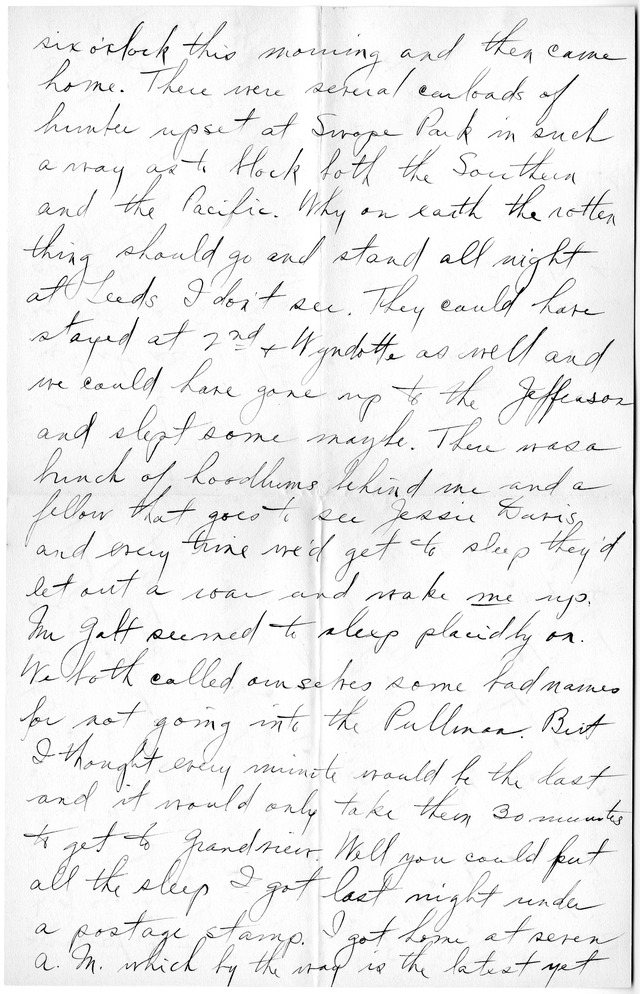 six o'clock this morning and then came
home. There were several carloads of
lumber upset at Swope Park in such
a way as to block both the Southern
and the Pacific. Why on earth the rotten
thing should go and stand all night
at Leeds I don't see. They could have
stayed at 2nd & Wyndotte as well and
we could have gone up to the Jefferson
and slept some maybe. There was a
bunch of hoodlums behind me and a
fellow that goes to see Jessie Davis
and every time we'd get to sleep they'd
let out a roar and wake me up.
Mr Galt seemed to sleep placidly on.
We both called ourselves some bad names
for not going into the Pullman. But
I thought every minute would be the last
and it would only take them 30 minutes
to get to Grandview. Well you could put
all the sleep I got last night under
a postage stamp. I got home at seven
a. m. which by the way is the latest yet